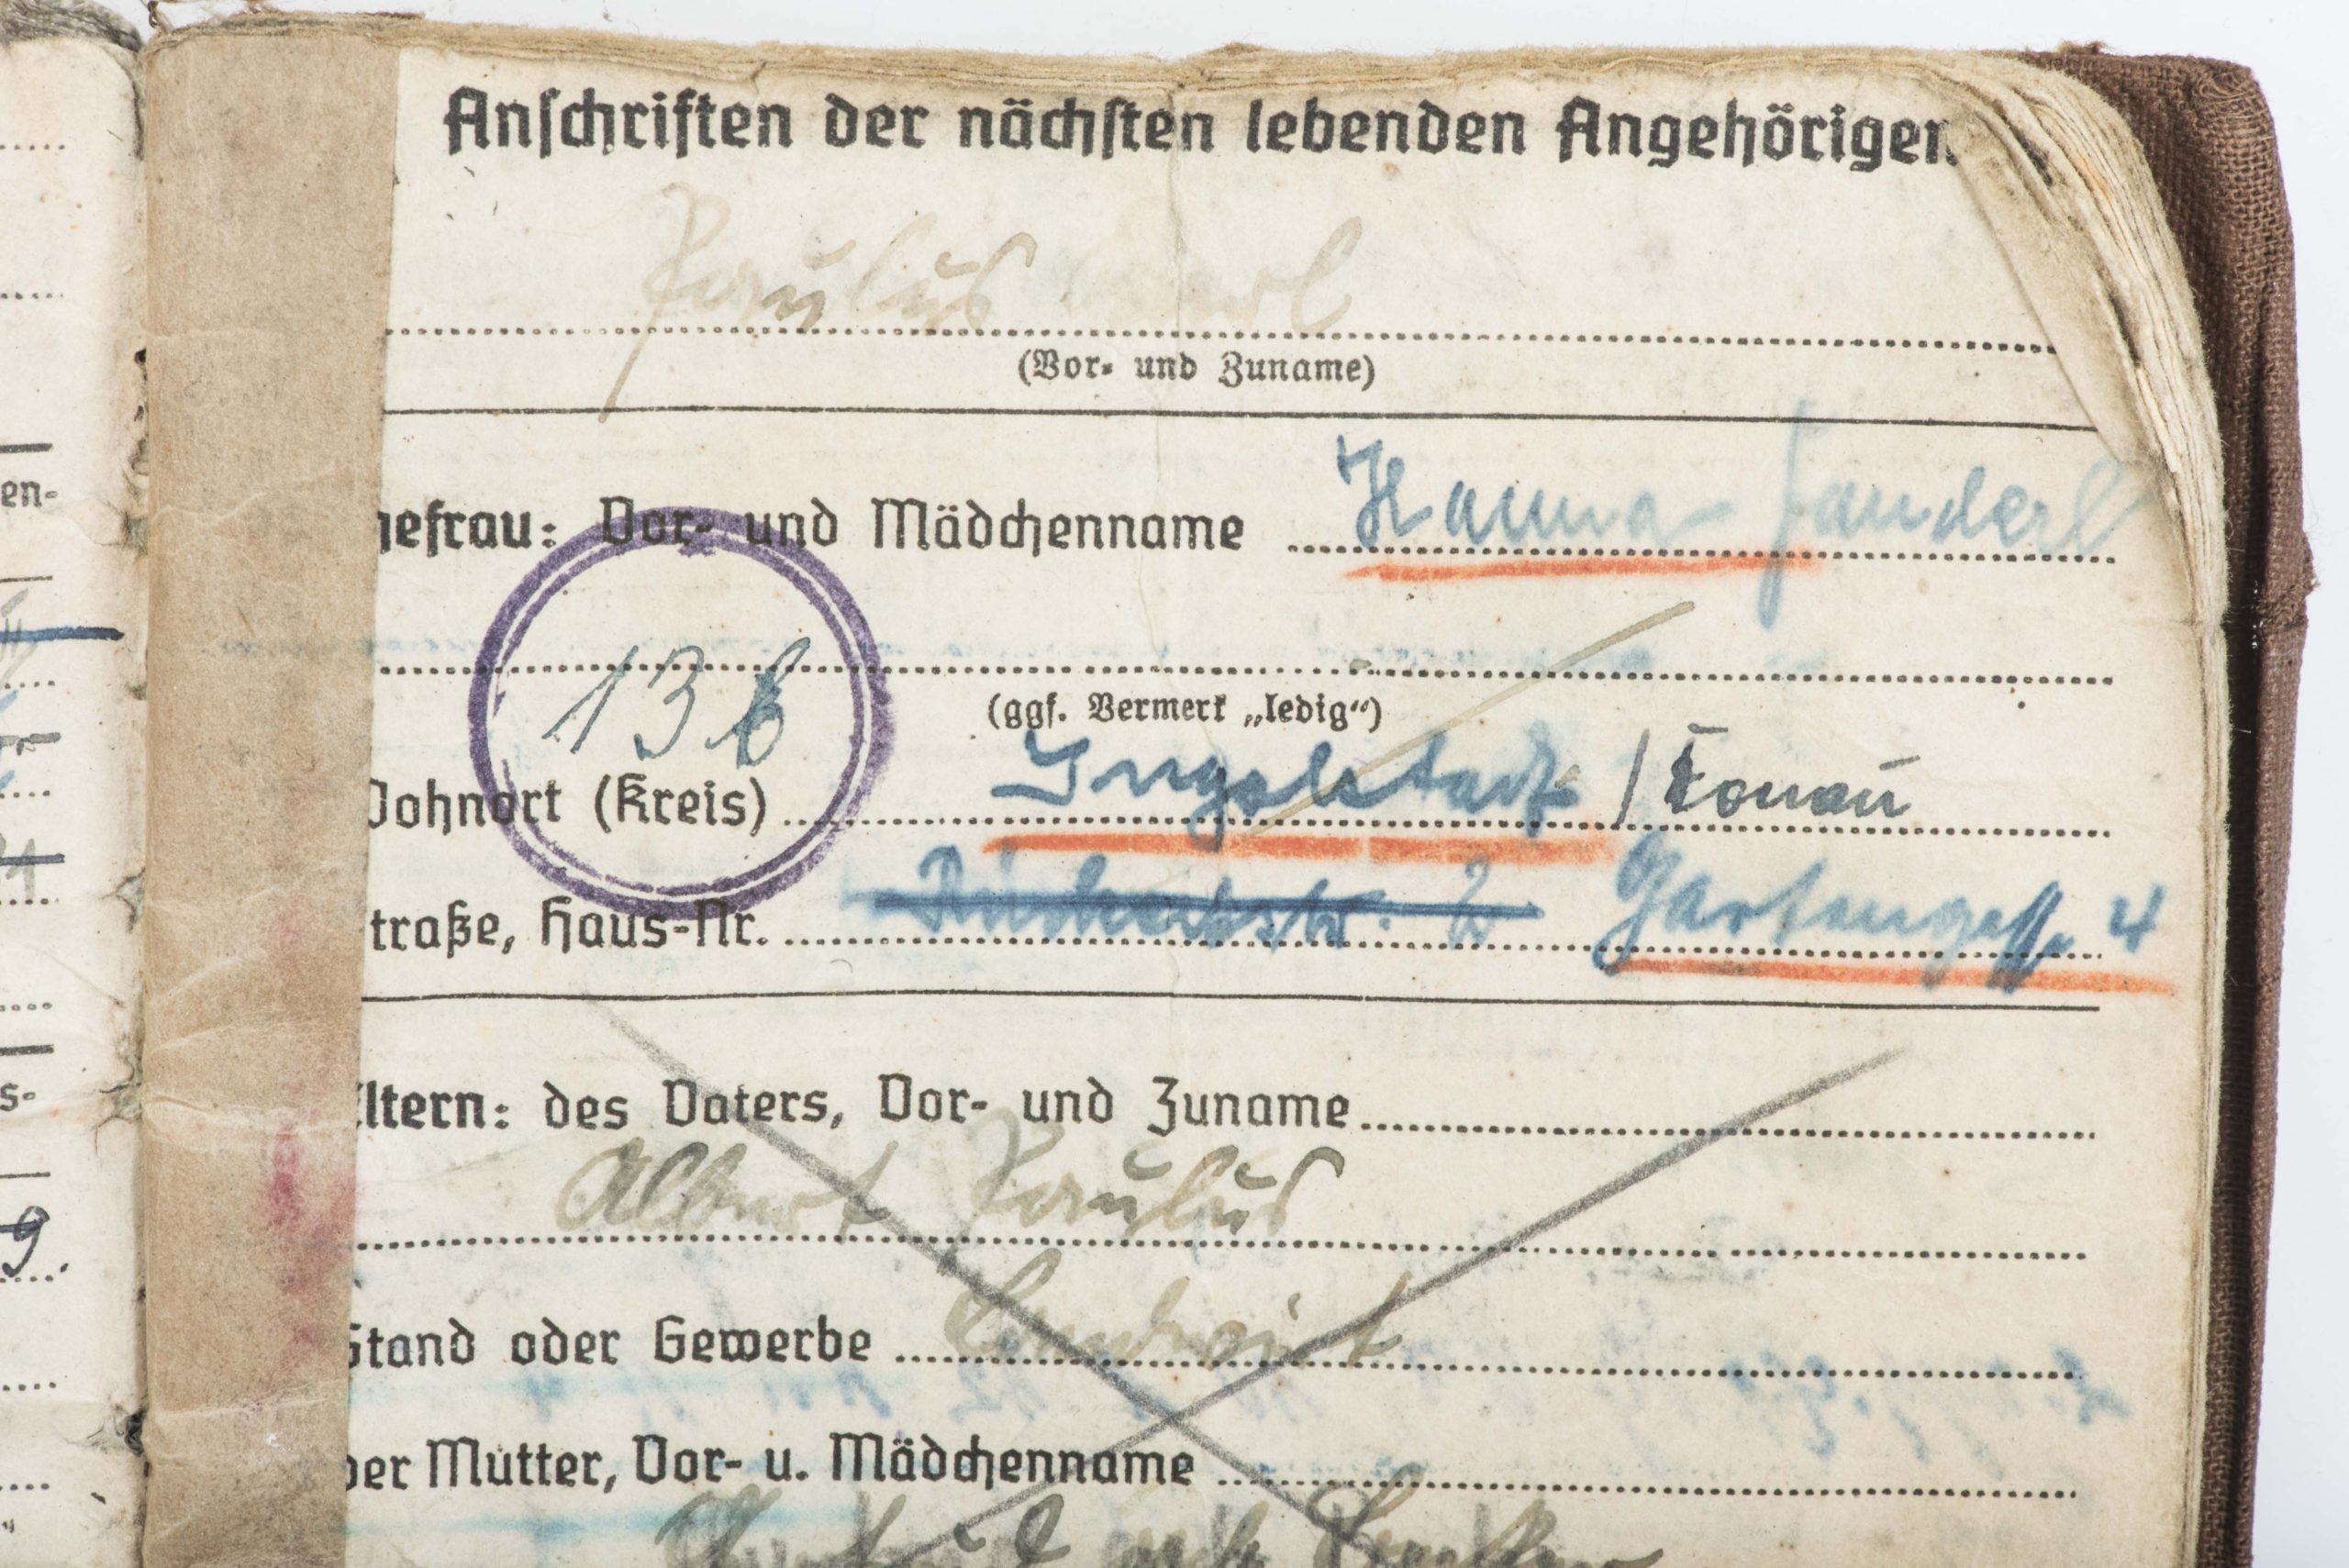 Anschriften der nächsten lebenden Angehörigen
Paulus Karl
(Vor- und Zuname)
hefrau: Vor- und Mädchenname Hanna Janderl
(ggf. Vermerk „ledig“)
13b
Wohnort (Kreis) Ingolstadt / Donau
Straße, Haus-Nr. Gartengasse 4
Eltern: des Vaters, Vor- und Zuname
Albert Paulus
Stand oder Gewerbe Landwirt
der Mutter, Vor- u. Mädchenname
en-
s-
9.